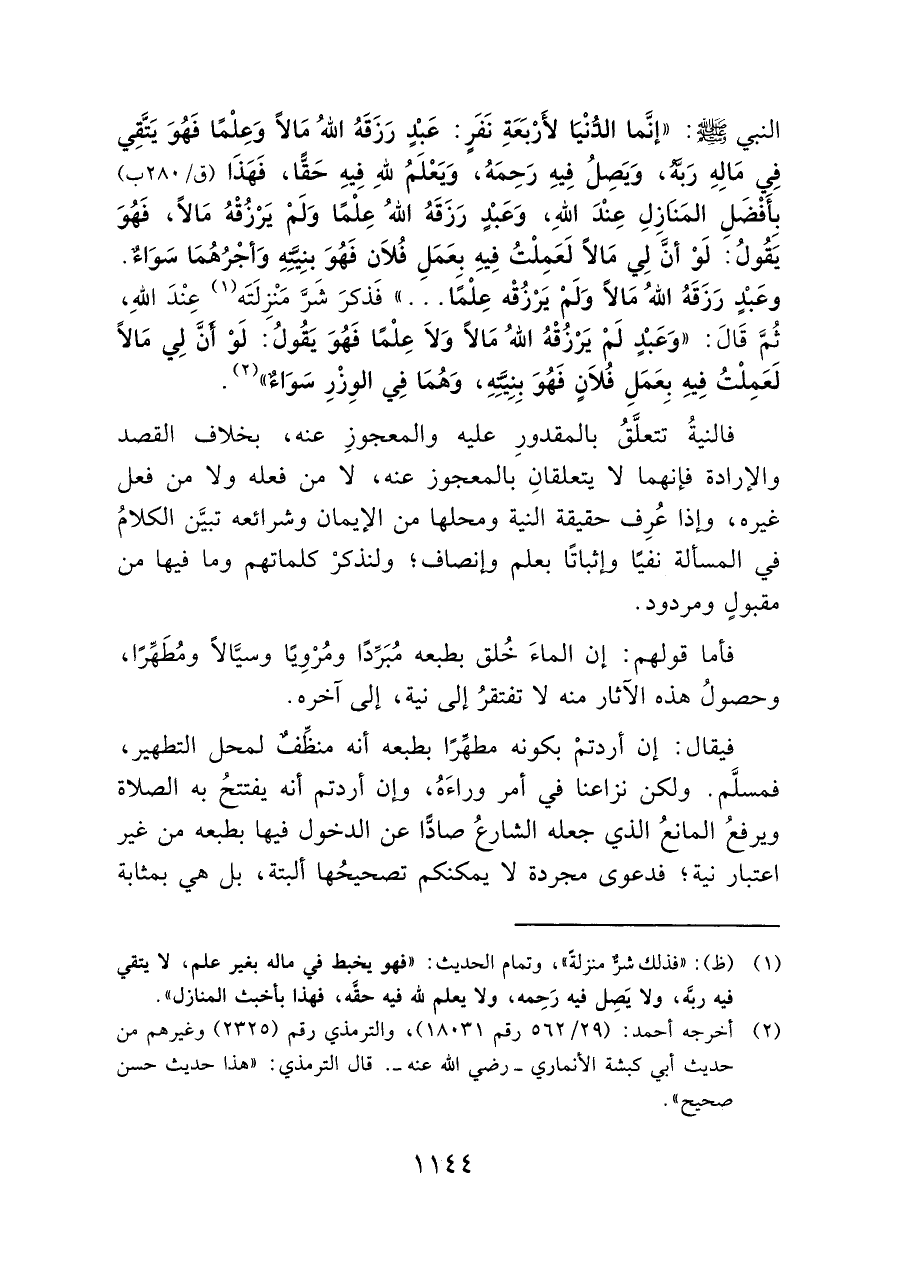 النبي ﷺ: «إنَّما الدُّنْيَا لأَرْبَعَةِ نَفَرٍ: عَبْدٍ رَزَقَهُ اللهُ مَالاً وَعِلْمًا فَهُوَ يَتَّقِي
فِي مَالِهِ رَبَّهُ، وَيَصِلُ فِيهِ رَحِمَهُ، وَيَعْلَمُ للهِ فِيهِ حَقًّا، فَهَذَا (ق/٢٨٠ب)
بِأَفْضَلِ المَنَازِلِ عِنْدَ اللهِ، وَعَبْدٍ رَزَقَهُ اللهُ عِلْمًا وَلَمْ يَرْزُقْهُ مَالاً، فَهُوَ
يَقُولُ: لَوْ أنَّ لِي مَالاً لَعَمِلْتُ فِيهِ بِعَمَلِ فُلاَن فَهُوَ بِنِيَّتِهِ وَأجْرُهُمَا سَوَاءٌ.
وعَبْدٍ رَزَقَهُ اللهُ مَالاً وَلَمْ يَرْزُقْه عِلْمًا...» فَذكرَ شَرَّ مَنْزِلَتَه(١) عِنْدَ اللهِ،
ثُمَّ قَالَ: «وَعَبْدٍ لَمْ يَرْزُقْهُ اللهُ مَالاً وَلاَ عِلْمًا فَهُوَ يَقُولُ: لَوْ أَنَّ لِي مَالاً
لَعَمِلْتُ فِيهِ بِعَمَلِ فُلاَنٍ فَهُوَ بِنِيَّتِهِ، وَهُمَا فِي الوِزْرِ سَوَاءٌ»(٢).
فالنيةُ تتعلَّقُ بالمقدورِ عليه والمعجوزِ عنه، بخلاف القصد
والإرادة فإنهما لا يتعلقانِ بالمعجوز عنه، لا من فعله ولا من فعل
غيره، وإذا عُرِف حقيقة النية ومحلها من الإيمان وشرائعه تبيَّن الكلامُ
في المسألة نفيًا وإثباتًا بعلم وإنصاف؛ ولنذكرْ كلماتهم وما فيها من
مقبولٍ ومردود.
فأما قولهم: إن الماءَ خُلق بطبعه مُبَرِّدًا ومُرْوِيًا وسيَّالاً ومُطَهِّرًا،
وحصولُ هذه الآثار منه لا تفتقرُ إلى نية، إلى آخره.
فيقال: إن أردتمْ بكونه مطهِّرًا بطبعه أنه منظِّفٌ لمحل التطهير،
فمسلَّم. ولكن نزاعنا في أمر وراءَهُ، وإن أردتم أنه يفتتحُ به الصلاة
ويرفعُ المانعُ الذي جعله الشارعُ صادًّا عن الدخول فيها بطبعه من غير
اعتبار نية؛ فدعوى مجردة لا يمكنكم تصحيحُها ألبتة، بل هي بمثابة
(١) (ظ): «فذلك شرٌّ منزلةً»، وتمام الحديث: «فهو يخبط في ماله بغير علم، لا يتقي
فيه ربَّه، ولا يَصِل فيه رَحِمه، ولا يعلم لله فيه حقَّه، فهذا بأخبث المنازل».
(٢) أخرجه أحمد: (٥٦٢/٢٩ رقم ١٨٠٣١)، والترمذي رقم (٢٣٢٥) وغيرهم من
حديث أبي كبشة الأنماري ـ رضي الله عنه ـ. قال الترمذي: «هذا حديث حسن
صحيح».
١١٤٤